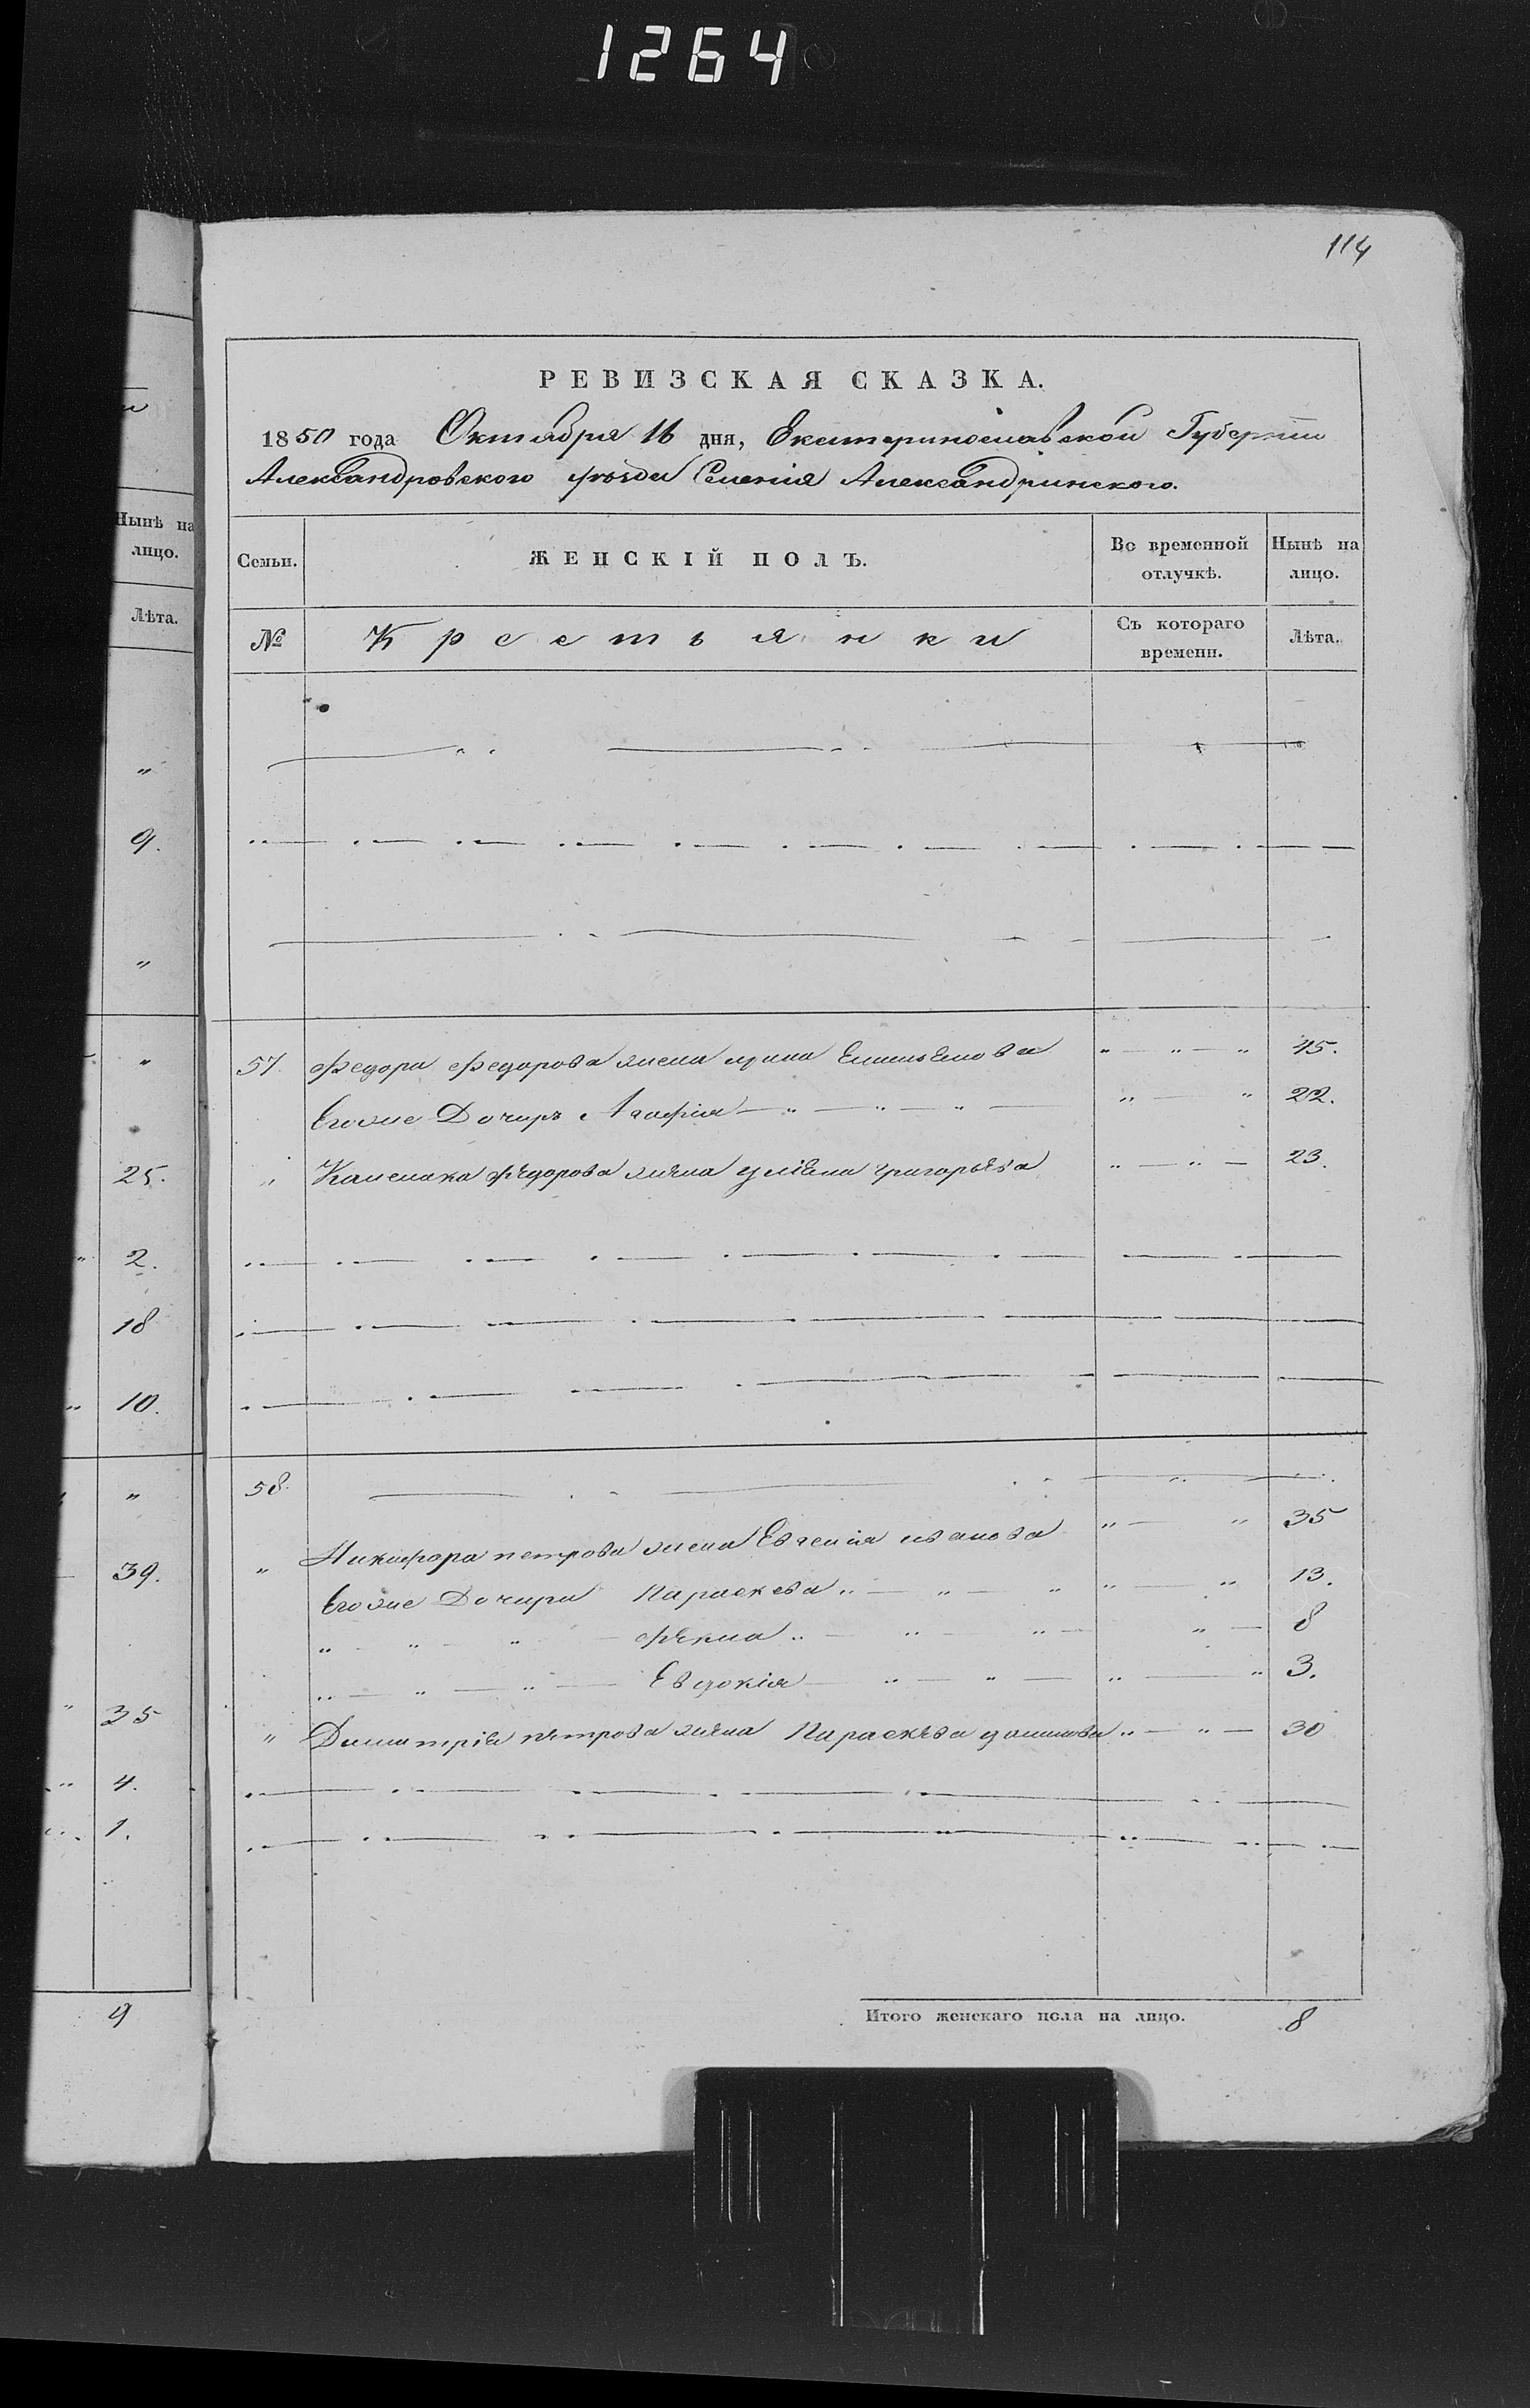 1264
114
РЕВИЗСКАЯ СКАЗКА.
1850 года Октября 16 дня, Екатеринославской Губерніи
Александровского уѣзда Селенія Александринского.
Нынѣ на лицо.
Лѣта.
Семьи.
ЖЕНСКІЙ ПОЛЪ.
Во временной отлучкѣ.
Нынѣ на лицо.
№
Крестьянки
Съ котораго времени.
Лѣта.
„
9.
„
„
25.
2.
18
10.
„
39.
35
4.
1.
9
57. Федора Федорова жена Ирина Емельянова „ — „ — „ 45.
Егоже Дочирь Агафія — „ — „ — „ — „ — „ 22.
„ Федорова жена уліяна григорьева „ — „ — 23.
58.
„ Никифора петрова жена Евгения иванова „ — „ 35
Егоже Дочири Параскева „ — „ — „ „ — „ 13.
„ „ — „ — Фекла „ — „ — „ — „ — 8
„ — „ — „ — Евдокія — „ — „ — „ — „ 3.
„ Димитрія петрова жена Параскева данилова „ — „ — 30
Итого женскаго пола на лицо. 8